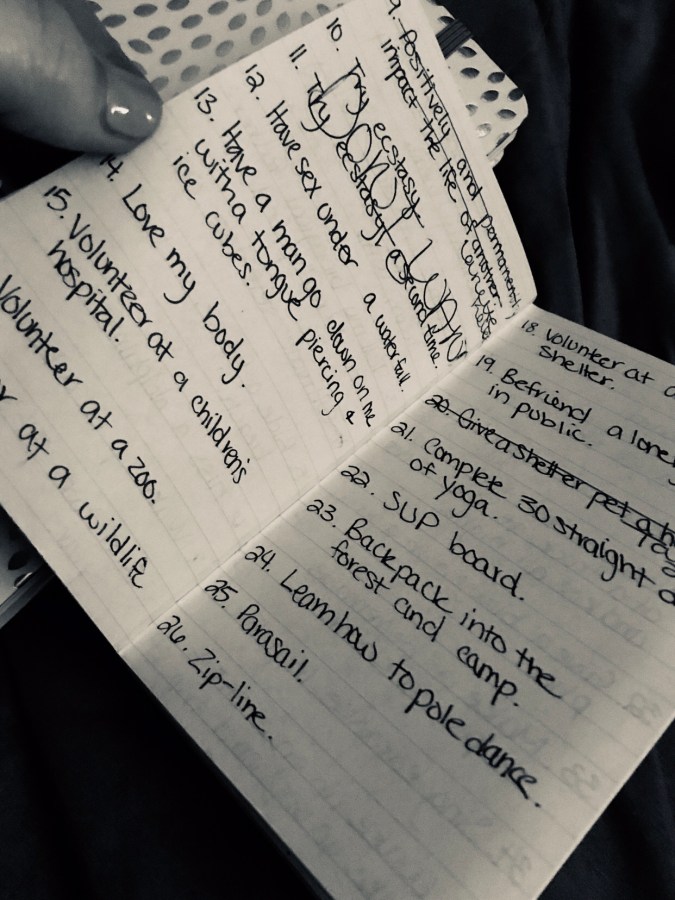 9. Positively and permanently
impact the life of another.
10. Try ecstasy.
11. Try ecstasy a second time.
DON'T WANT
12. Have sex under a waterfall.
13. Have a man go down on me
with a tongue piercing &
ice cubes.
14. Love my body.
15. Volunteer at a children's
hospital.
Volunteer at a zoo.
at a wildlife
18. Volunteer at a
shelter.
19. Befriend a
in public.
20. Give a shelter pet a
21. Complete 30 straight
of yoga.
22. SUP board.
23. Backpack into the
forest and camp.
24. Learn how to pole dance.
25. Parasail.
26. Zip-line.